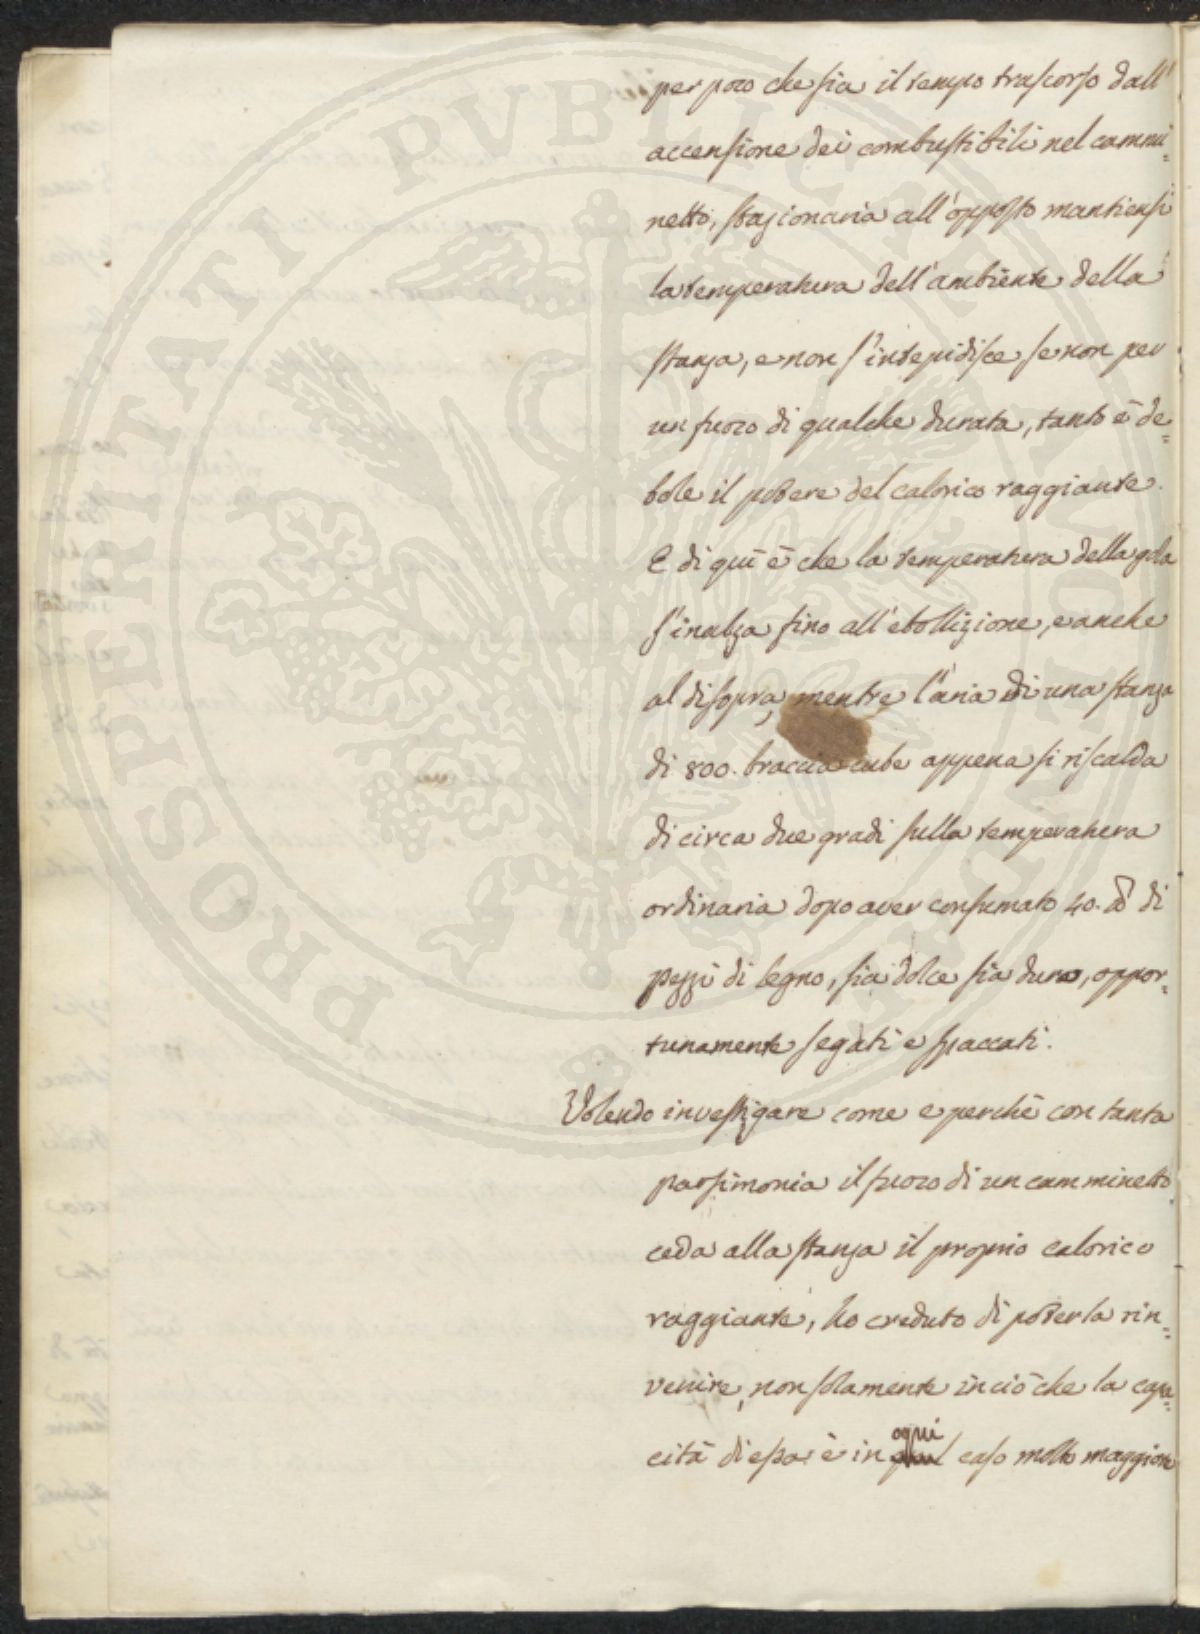 per poco che sia il tempo trascorso dall'
accensione dei combustibili nel cammi=
netto, stazionaria all'opposto mantiensi
la temperatura dell'ambiente della
stanza, e non s'intepidisce se non per
un fuoco di qualche durata, tanto è de=
bole il potere del calorico raggiante.
E di quì è che la temperatura della gola
s'inalza fino all'ebollizione, e anche
al disopra, mentre l'aria di una stanza
di 800. braccia cube appena si riscalda
di circa due gradi sulla temperatura
ordinaria dopo aver consumato 40. di
pezzi di legno, sia dolce sia duro, oppor=
tunamente segati e spaccati.
Volendo investigare come e perchè con tanta
parsimonia il fuoco di un camminetto
ceda alla stanza il proprio calorico
raggiante, ho creduto di poterla rin=
venire, non solamente in ciò che la capa=
cità di essa è in ogni caso molto maggiore
PROSPERITATI PUBLICAE